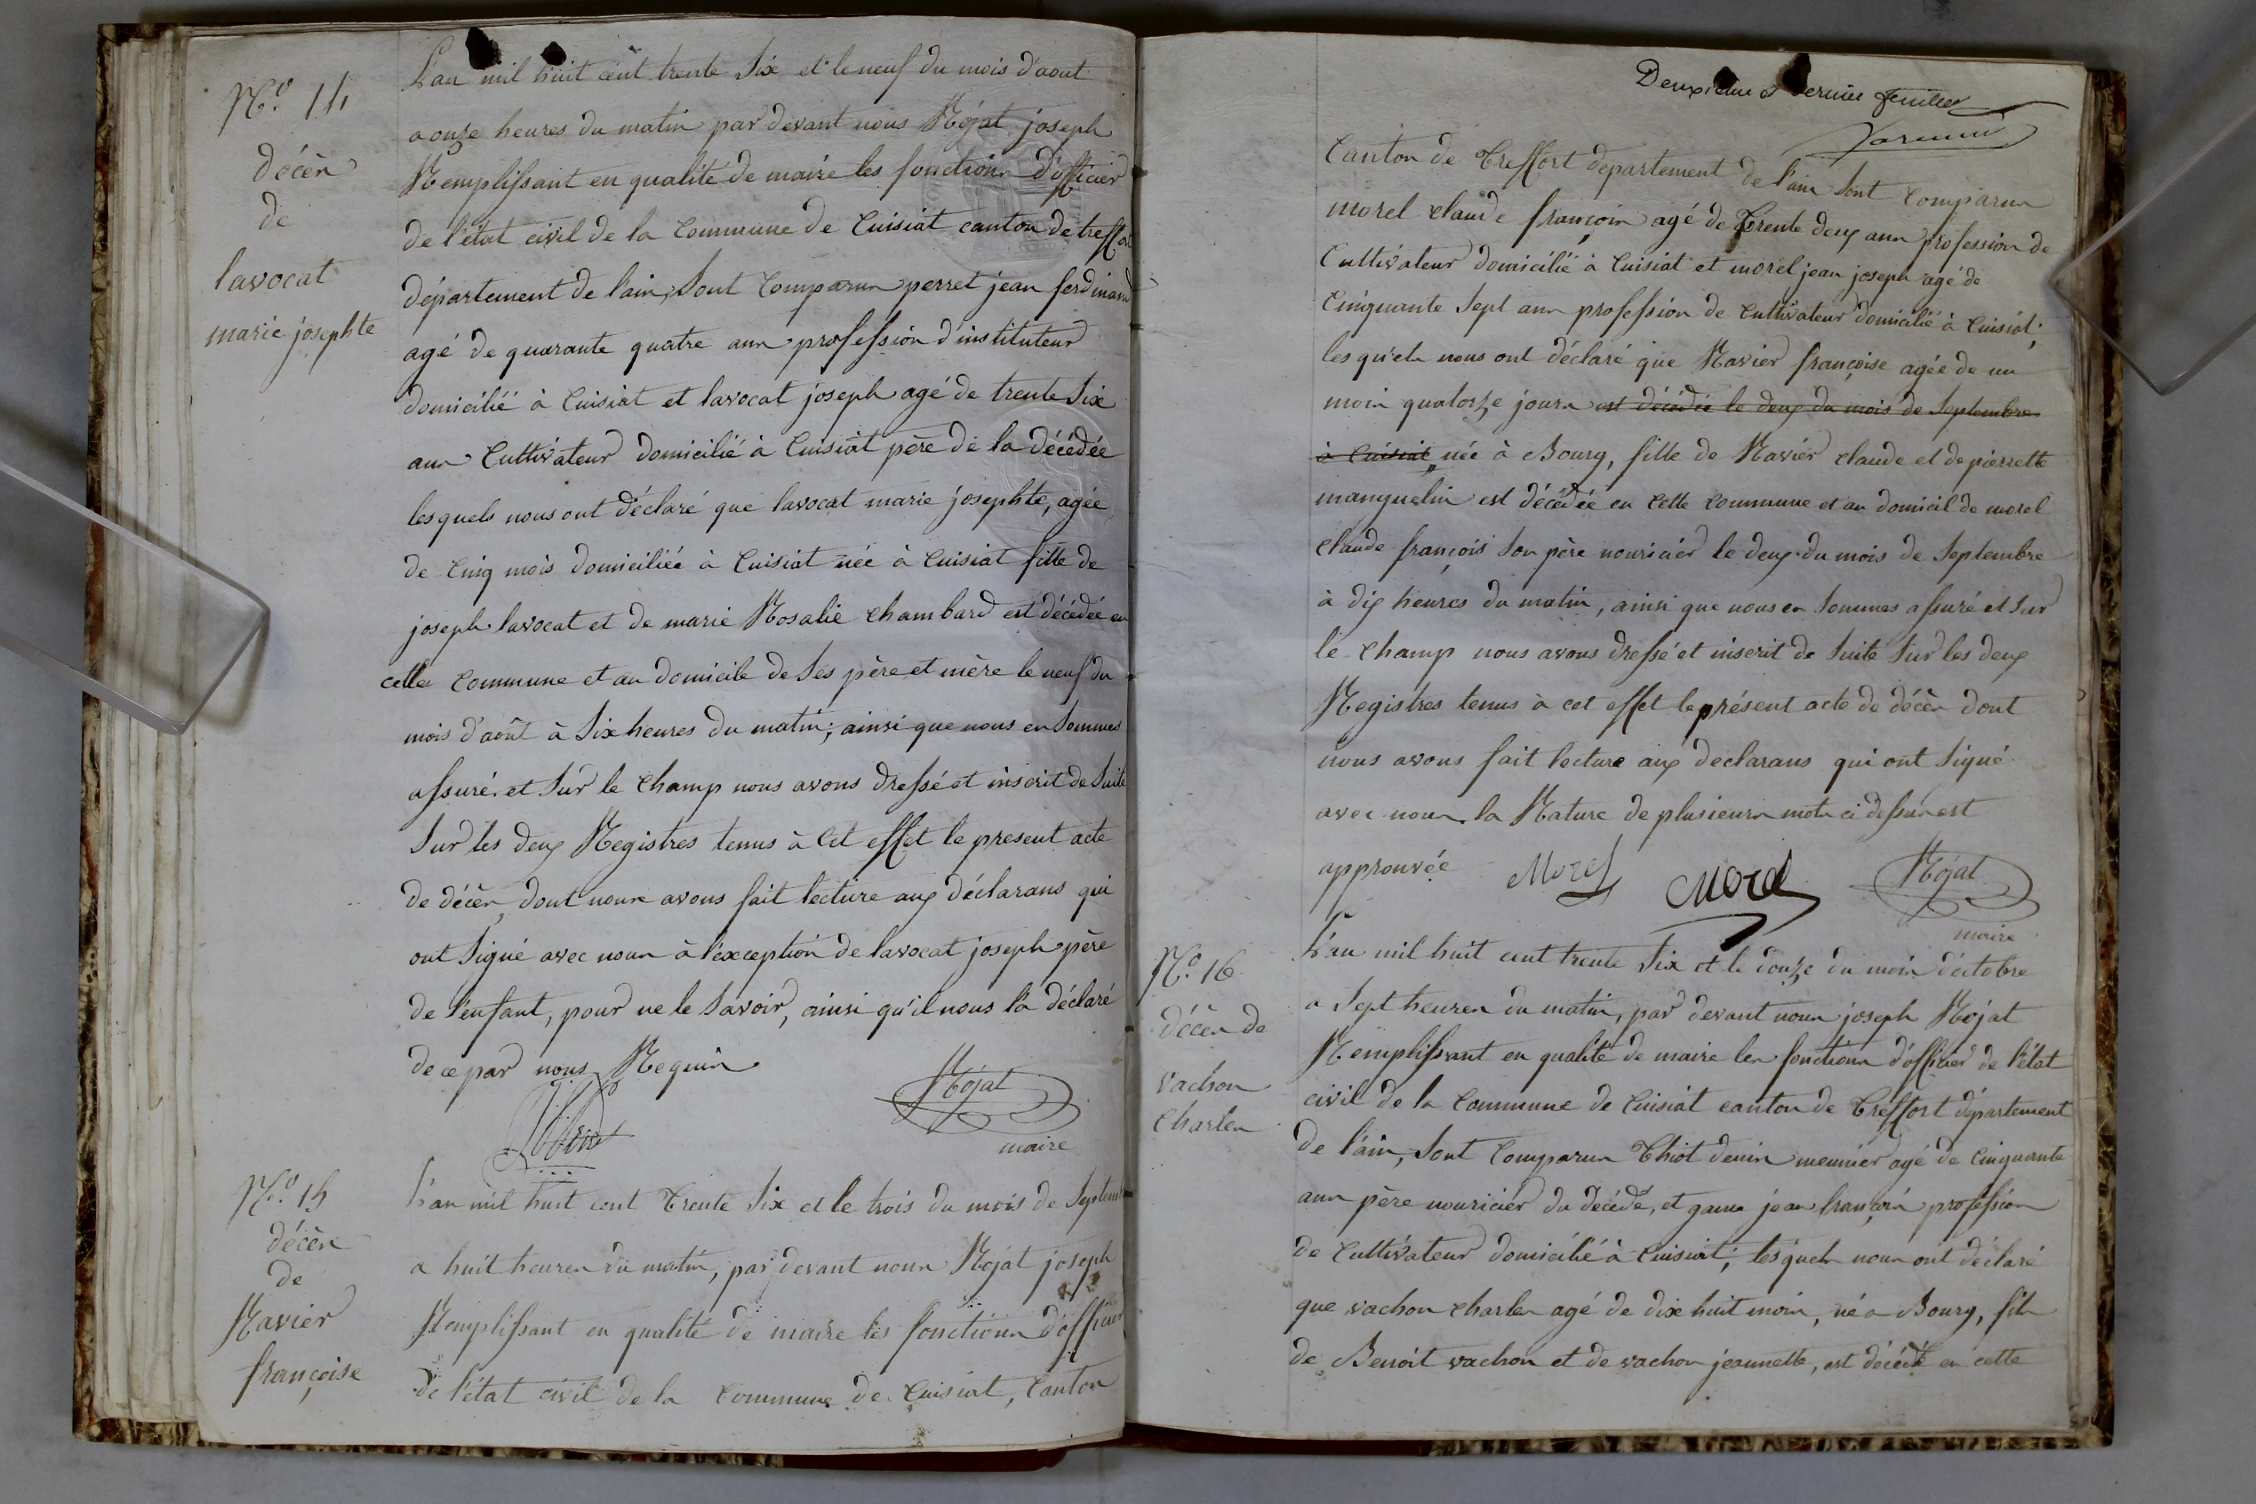 N.º 14
décès
de
lavocat
marie josephte
L'an mil huit cent trente Six et le neuf du mois d'aout
a onze heures du matin par devant nous Réjat joseph
Remplissant en qualité de maire les fonctions d'officier
de l'état civil de la Commune de Cuisiat canton de treffort
département de l'ain, Sont Comparus perret jean ferdinand
agé de quarante quatre ans profession d'instituteur
domicilié à Cuisiat et lavocat joseph agé de trente Six
ans Cultivateur domicilié à Cuisiat père de la décédée
lesquels nous ont déclaré que lavocat marie josephte, agée
de Cinq mois domiciliée à Cuisiat née à Cuisiat fille de
joseph lavocat et de marie Rosalie Chambard est décédée en
cette Commune et au domicile de Ses père et mère le neuf du
mois d'août à Six heures du matin; ainsi que nous en Sommes
assuré et Sur le Champ nous avons dressé et inscrit de Suite
Sur les deux Registres tenus à Cet effet le present acte
de décès, dont nous avons fait lecture aux déclarans qui
ont Signé avec nous à l'exception de lavocat joseph père
de l'enfant, pour ne le Savoir, ainsi qu'il nous l'a déclaré
de ce par nous Requis
Réjat
maire
N.º 15
décès
de
Ravier
françoise
L'an mil huit cent Trente Six et le trois du mois de Septembre
a huit heures du matin, par devant nous Réjat joseph
Remplissant en qualité de maire les fonctions d'officier
de l'état civil de la Commune de Cuisiat, Canton
Deuxième & dernier feuillet
Canton de Treffort departement de l'ain Sont Comparus
morel Claude françois agé de Trente deux ans profession de
Cultivateur domicilié à Cuisiat et morel jean joseph agé de
Cinquante Sept ans profession de Cultivateur domicilié à Cuisiat;
lesquels nous ont déclaré que Ravier françoise agée de un
mois quatorze jours est décédée le deux du mois de Septembre
à Cuisiat, née à Bourg, fille de Ravier Claude et de pierrette
manguelin est décédée en Cette Commune et au domicil de morel
Claude françois Son père nouricier le deux du mois de Septembre
à dix heures du matin, ainsi que nous en Sommes assuré et Sur
le Champ nous avons dressé et inscrit de Suite Sur les deux
Registres tenus à cet effet le présent acte de décès dont
nous avons fait lecture aux declarans qui ont Signé
avec nous. la Rature de plusieurs mots ci dessus est
approuvée Morel Morel Réjat
maire
N.º 16
décès de
vachon
Charles
L'an mil huit cent trente Six et le douze du mois d'octobre
a Sept heures du matin, par devant nous joseph Réjat
Remplissant en qualité de maire les fonctions d'officier de l'état
civil de la Commune de Cuisiat canton de Treffort département
de l'ain, Sont Comparus Thiot denis meunier agé de Cinquante
ans père nouricier du décédé, et jean françois profession
de Cultivateur domicilié à Cuisiat; lesquels nous ont déclaré
que vachon Charles agé de dix huit mois, né a Bourg, fils
de Benoit vachon et de vachon jeannette, est décédé en cette